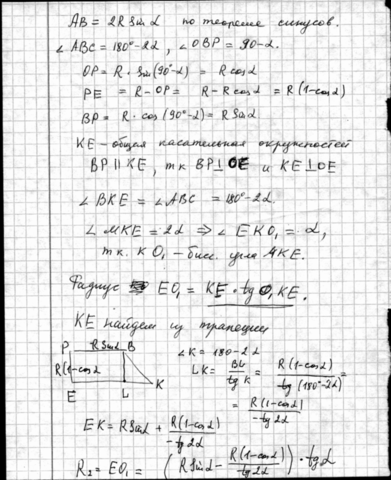 AB = 2R sin α по теореме синусов.
∠ABC = 180° - 2α, ∠OBP = 90 - α.
OP = R · sin(90° - α) = R cos α
PE = R - OP = R - R cos α = R(1 - cos α)
BP = R · cos(90° - α) = R sin α
KE - общая касательная окружностей
BP || KE, т.к. BP ⊥ OE и KE ⊥ OE
∠BKE = ∠ABC = 180° - 2α.
∠MKE = 2α ⇒ ∠EKO₁ = α,
т.к. KO₁ - бисс. угла MKE.
Радиус EO₁ = KE · tg O₁KE.
KE найдем из трапеции
P R sin α B
R(1-cos α
E L K
∠K = 180 - 2α
LK = BL / tg K = R(1-cos α) / tg(180°-2α) =
= R(1-cos α) / -tg 2α
EK = R sin α + R(1-cos α) / -tg 2α
R₂ = EO₁ = (R sin α - R(1-cos α) / tg 2α) · tg α